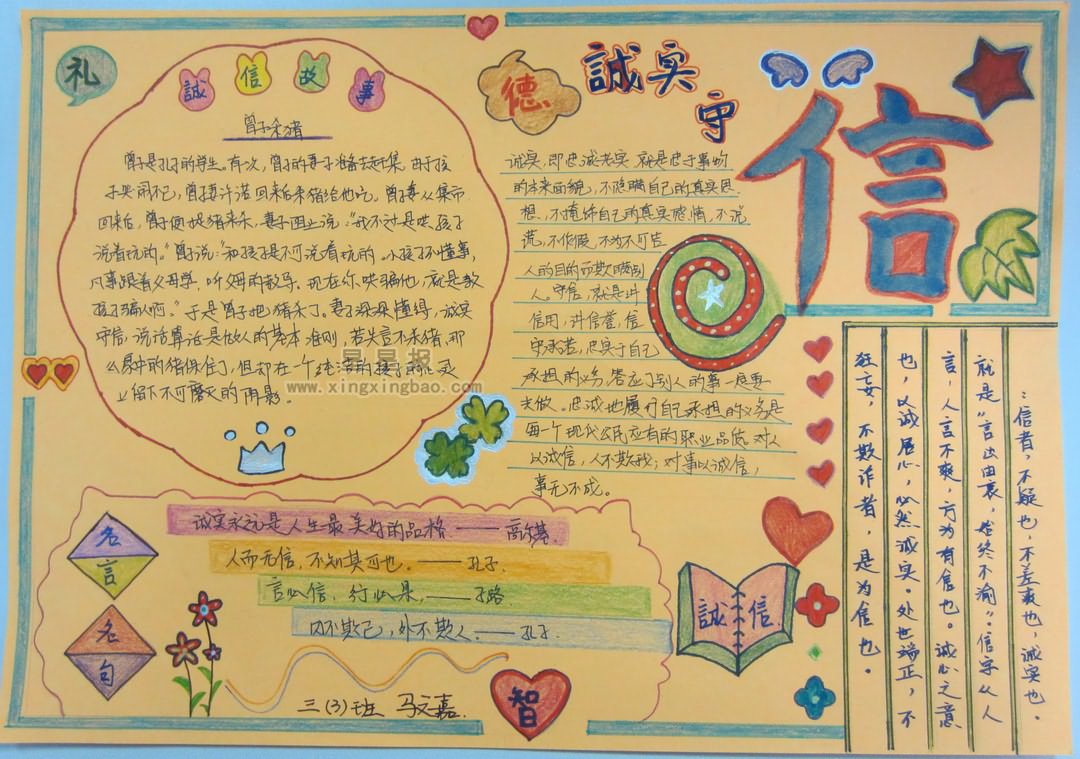 礼
誠信故事
曾子杀猪
曾子是孔子的学生。有次，曾子的妻子准备去赶集，由于孩
子哭闹不已，曾子妻许诺回来后杀猪给他吃。曾子妻从集市
回来后，曾子便捉猪来杀，妻子阻止说："我不过是哄孩子
说着玩的。"曾子说："和孩子是不可说着玩的。小孩子不懂事，
凡事跟着父母学，听父母的教导。现在你哄骗他，就是教
孩子骗人啊。"于是曾子把猪杀了。妻子深深懂得，诚实
守信，说话算话是做人的基本准则，若失言不杀猪，那
么家中的猪保住了，但却在一个纯洁的孩子的心灵
上留下不可磨灭的阴影。
星星报
www.xingxingbao.com
德
誠实
守
信
诚实，即忠诚老实，就是忠于事物
的本来面貌，不隐瞒自己的真实思
想，不掩饰自己的真实感情，不说
谎，不作假，不为不可告
人的目的而欺瞒别
人。守信，就是讲
信用，讲信誉，信
守承若，忠实于自己
承担的义务，答应了别人的事一定要
去做。忠诚地履行自己承担的义务是
每一个现代公民应有的职业品质。对人
以诚信，人不欺我；对事以诚信，
事无不成。
：信者，不疑也，不差爽也，诚实也。
就是"言出由衷，始终不渝"。信字从人
言，人言不爽，方为有信也。诚心之意
也，以诚居心，必然诚实。处世端正，不
狂妄，不欺诈者，是为信也。
名言
名句
诚实永远是人生最美好的品格——高尔基
人而无信，不知其可也。——孔子
言必信，行必果，——子路
内不欺己，外不欺人。——孔子
誠信
智
三（3）班 马文嘉